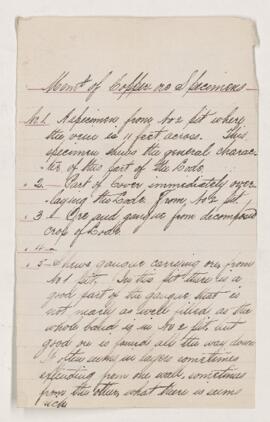 Memo of Copper ore Specimens
No 1. A specimen from No 2 pit where
the vein is 11 feet across. This
specimen shows the general charac-
ter of this part of the Lode.
" 2. Part of Cover immediately over-
laying the Lode from No 2 pit.
" 3. Ore and gangue from decomposed
Crop of Lode
" 4 "
" 5 Shows gangue carrying ore from
No 1 pit. In this pit there is a
good part of the gangue that is
not nearly as well filled as the
whole band is in No 2 pit, but
good ore is found all the way down
It often comes in tapes sometimes
extending from one wall, sometimes
from the other, what there is seems
rich